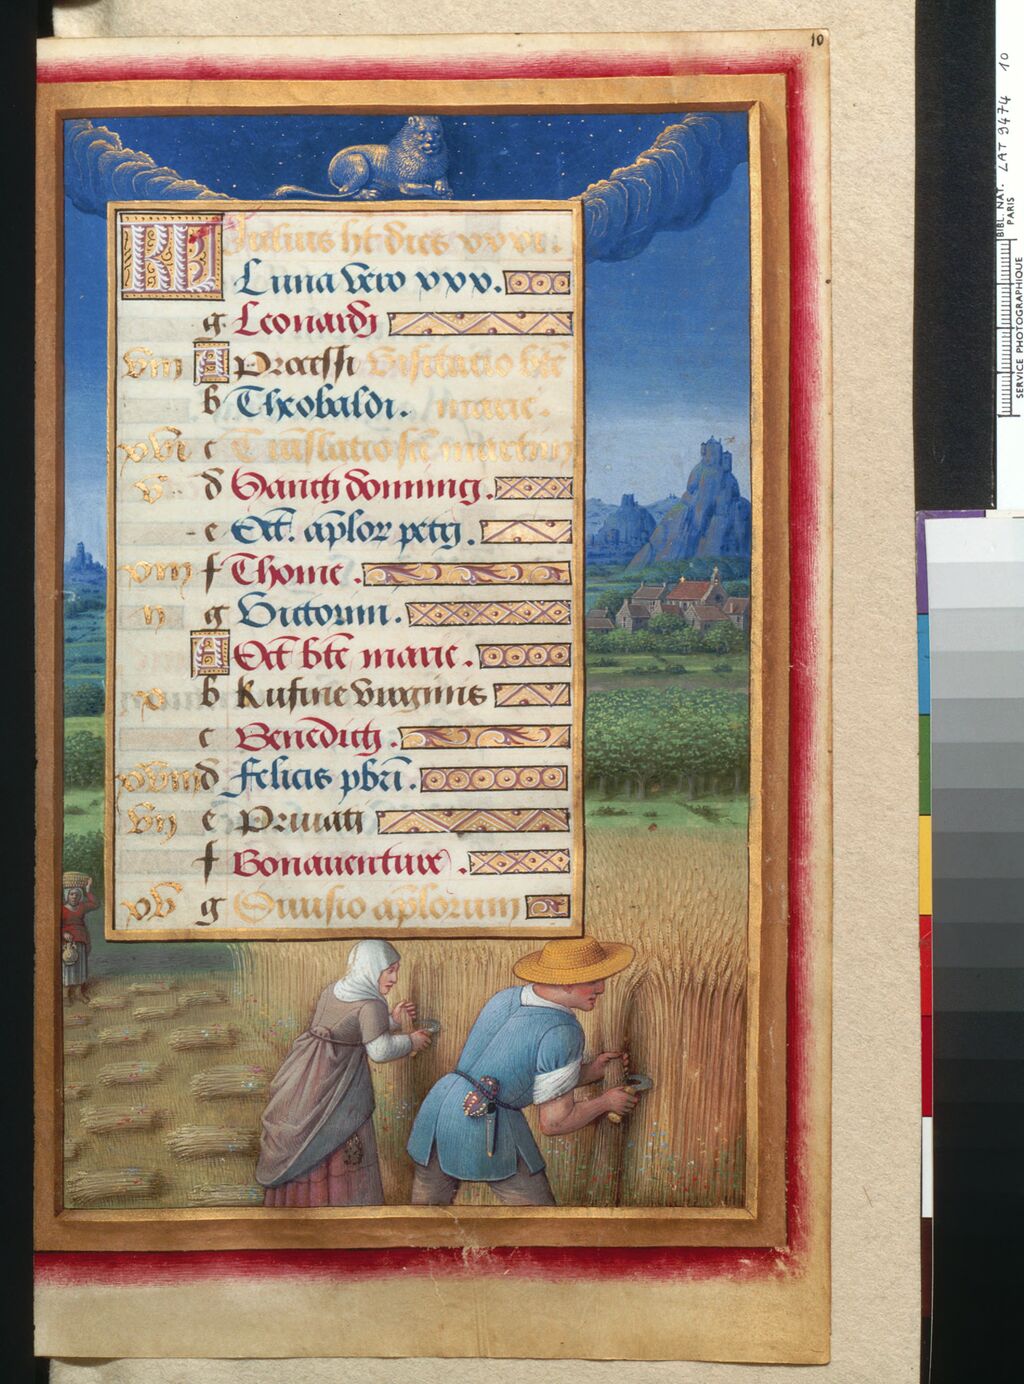 10
KL Julius ht dies xxxi.
Luna vero xxx.
g Leonardi
A Processi Visitatio bte
b Theobaldi. marie.
xvi c Translatio sci martini
v d Sancti dominici.
e Oct. aplor petri.
xiii f Thome.
ii g Victorini.
A Oct bte marie.
x b Rufine virginis
c Benedicti.
xviii d Felicis pbri.
vii e Privati
f Bonaventure.
xv g Divisio aplorum
BIBL. NAT. LAT 9474 10
PARIS
SERVICE PHOTOGRAPHIQUE